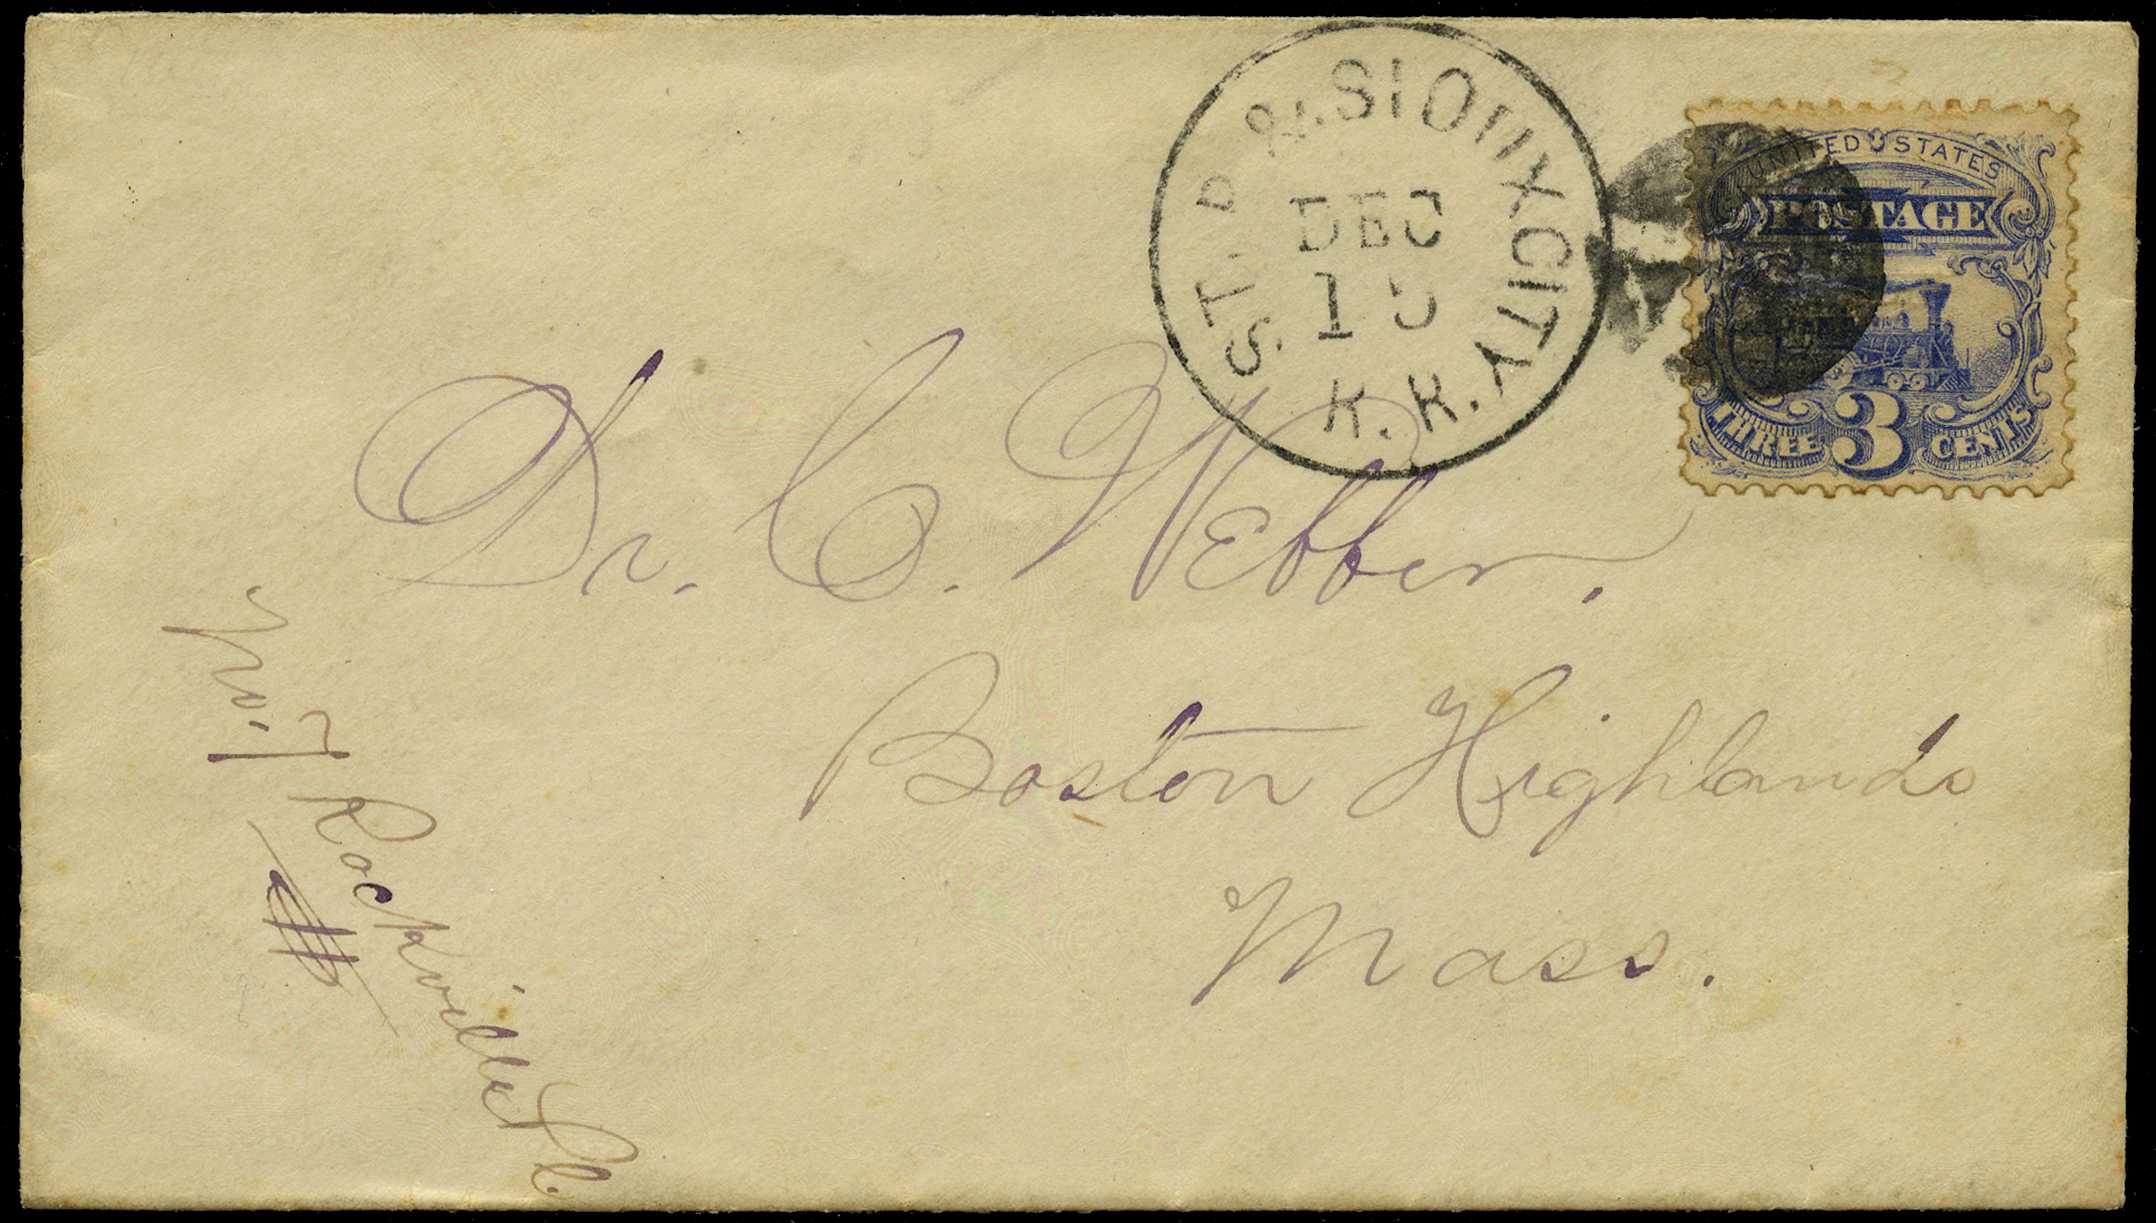 ST. P. & SIOUX CITY R.R.
DEC
15
UNITED STATES
POSTAGE
THREE 3 CENTS
Dr. C. Webber.
Boston Highlands
Mass.
No. 7 Rockville Pl.